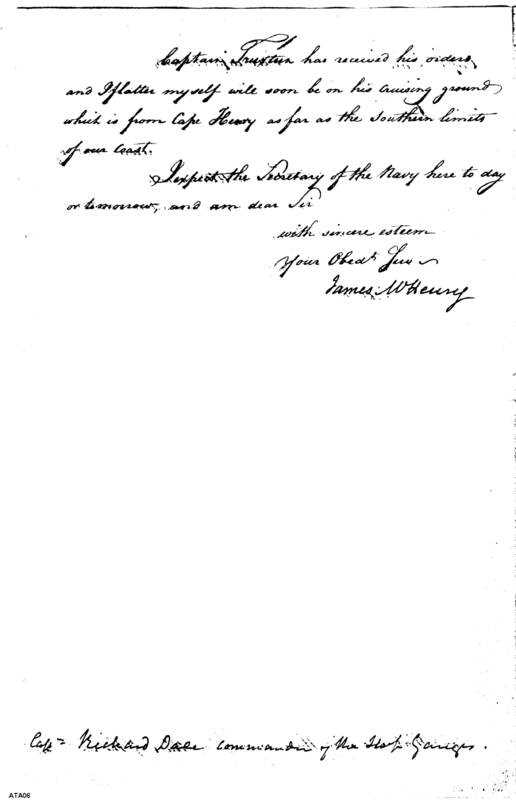 Captain Truxtun has received his orders
and I flatter myself will soon be on his cruising ground
which is from Cape Henry as far as the Southern limits
of our Coast.
I expect the Secretary of the Navy here to day
or tomorrow, and am dear Sir
with sincere esteem
Your Obedt Serv
James McHenry
Capn Richard Dale commander of the Ship Ganges.
ATA06